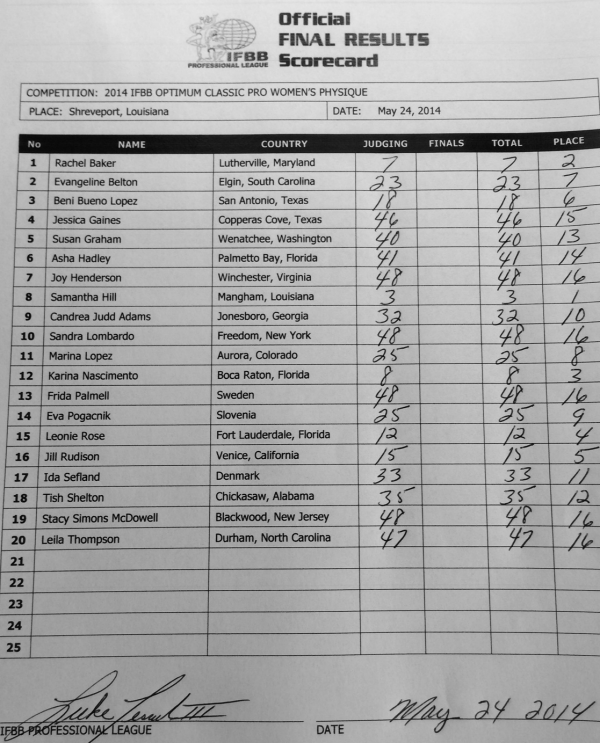 Official
FINAL RESULTS
IFBB
PROFESSIONAL LEAGUE Scorecard
COMPETITION: 2014 IFBB OPTIMUM CLASSIC PRO WOMEN'S PHYSIQUE
PLACE: Shreveport, Louisiana DATE: May 24, 2014
No NAME COUNTRY JUDGING FINALS TOTAL PLACE
1 Rachel Baker Lutherville, Maryland 7 7 2
2 Evangeline Belton Elgin, South Carolina 23 23 7
3 Beni Bueno Lopez San Antonio, Texas 18 18 6
4 Jessica Gaines Copperas Cove, Texas 46 46 15
5 Susan Graham Wenatchee, Washington 40 40 13
6 Asha Hadley Palmetto Bay, Florida 41 41 14
7 Joy Henderson Winchester, Virginia 48 48 16
8 Samantha Hill Mangham, Louisiana 3 3 1
9 Candrea Judd Adams Jonesboro, Georgia 32 32 10
10 Sandra Lombardo Freedom, New York 48 48 16
11 Marina Lopez Aurora, Colorado 25 25 8
12 Karina Nascimento Boca Raton, Florida 8 8 3
13 Frida Palmell Sweden 48 48 16
14 Eva Pogacnik Slovenia 25 25 9
15 Leonie Rose Fort Lauderdale, Florida 12 12 4
16 Jill Rudison Venice, California 15 15 5
17 Ida Sefland Denmark 33 33 11
18 Tish Shelton Chickasaw, Alabama 35 35 12
19 Stacy Simons McDowell Blackwood, New Jersey 48 48 16
20 Leila Thompson Durham, North Carolina 47 47 16
21
22
23
24
25
May 24 2014
IFBB PROFESSIONAL LEAGUE DATE